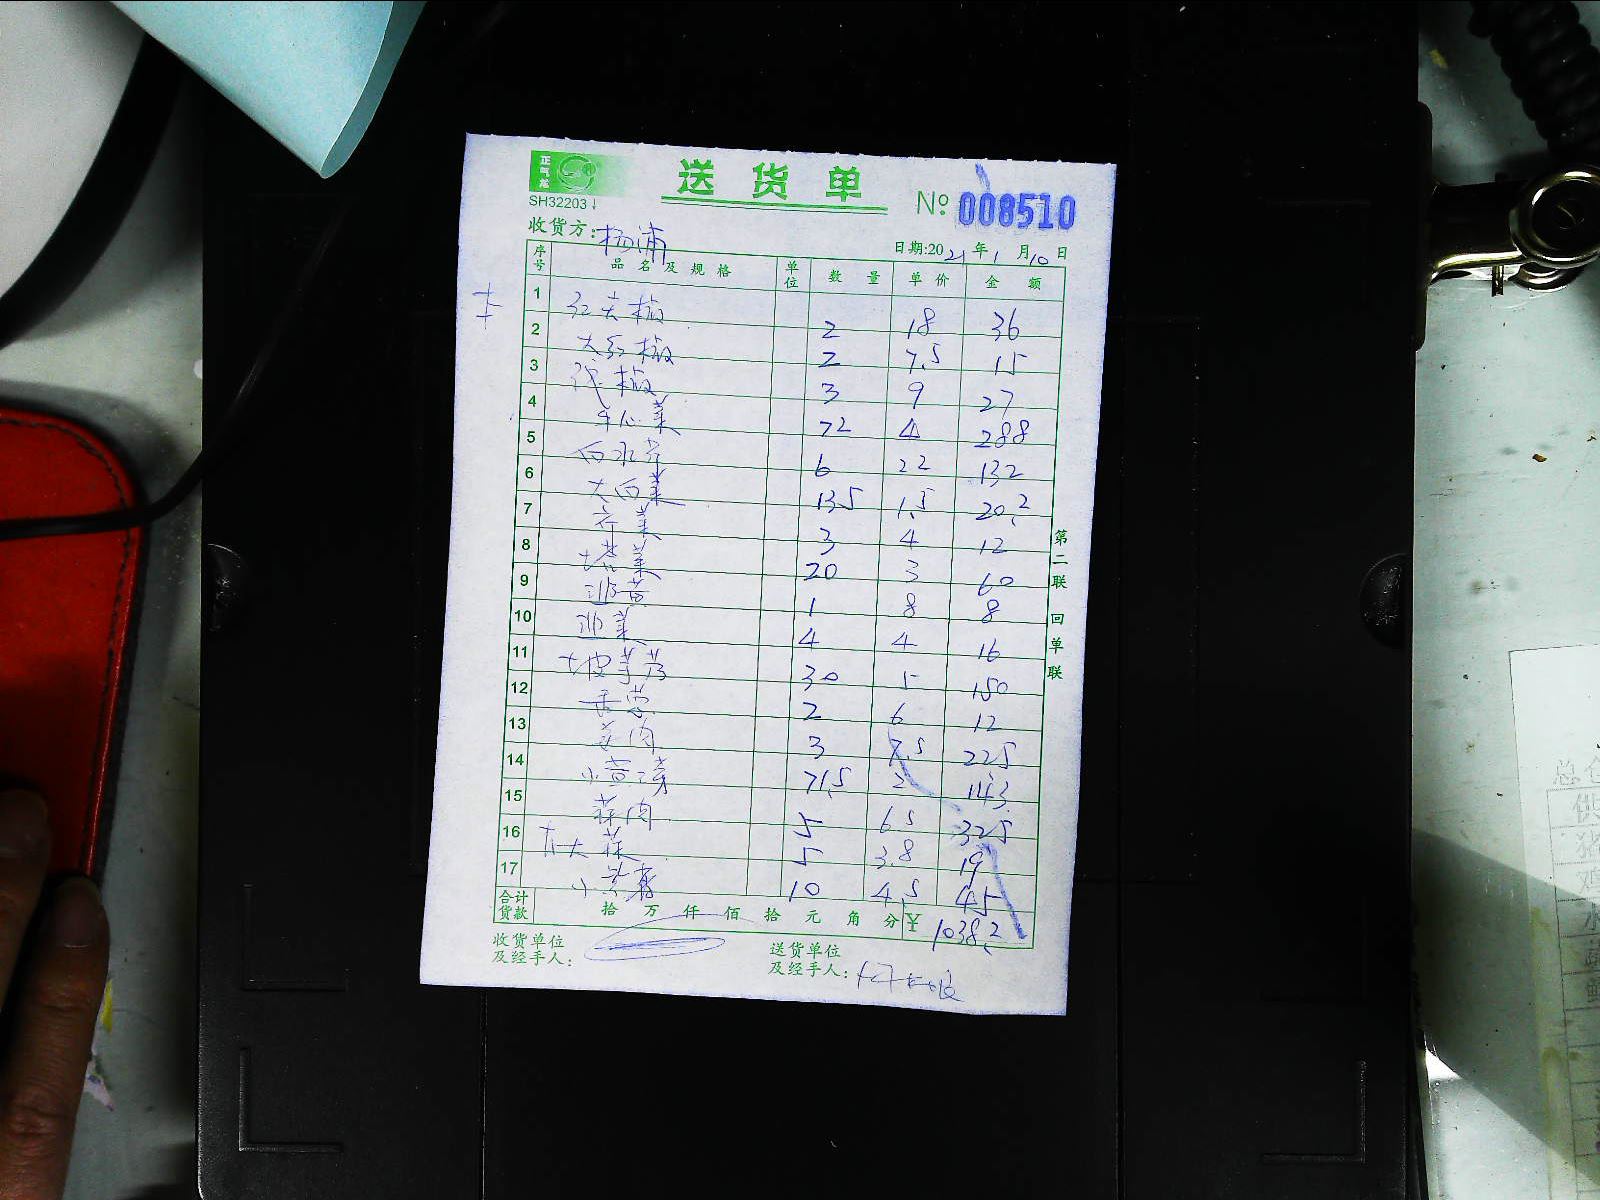 正气龙
SH32203
送货单
№ 008510
收货方：杨浦
日期:2021年1月10日
序号 品名及规格 单位 数量 单价 金额
1 红尖椒 2 18 36
2 大红椒 2 7.5 15
3 椒 3 9 27
4 牛心菜 72 4 288
5 白水芹 6 22 132
6 大白菜 13.5 1.5 20.2
7 芹菜 3 4 12
8 塔菜 20 3 60
9 韭黄 1 8 8
10 韭菜 4 4 16
11 大皮芋艿 30 5 150
12 香葱 2 6 12
13 肉 3 7.5 22.5
14 小豆芽 71.5 2 143
15 蒜肉 5 6.5 32.5
16 大蒜 5 3.8 19
17 小 10 4.5 45
合计货款 拾 万 仟 佰 拾 元 角 分 ¥ 1038.2
收货单位及经手人：
送货单位及经手人：
第二联 回单联